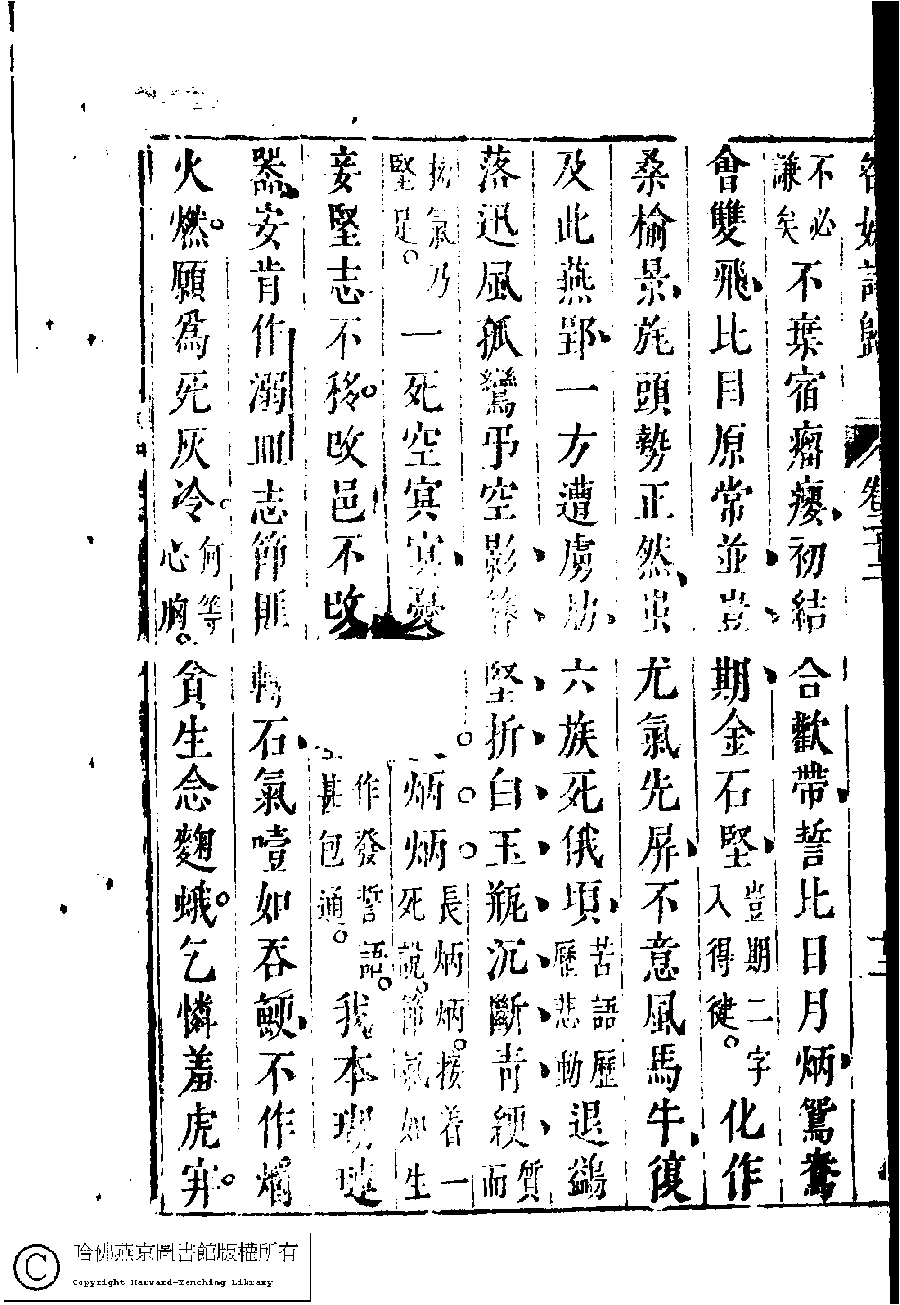 名媛詩歸 卷二十二 十二
不必謙矣不棄宿瘤癭初結合歡帶誓比日月炳鴛鴦
會雙飛比目原常並豈期金石堅豈期二字入得健化作
桑榆景旄頭勢正然蚩尤氣先屏不意風馬牛復
及此燕郢一方遭虜劫六族死俄頃苦語歷歷悲動退鷁
落迅風孤鸞弔空影簪堅折白玉瓶沉斷青綆質而
氣乃堅足一死空冥冥憂炳炳長炳炳接着一死說節氣如生
妾堅志不移改邑不改作發誓語甚包通我本瑚璉
器安肯作溺皿志節匪轉石氣噎如吞鯁不作爝
火燃願為死灰冷何等心胸貪生念麴蛾乞憐羞虎穽
哈佛燕京圖書館版權所有
Copyright Harvard-Yenching Library